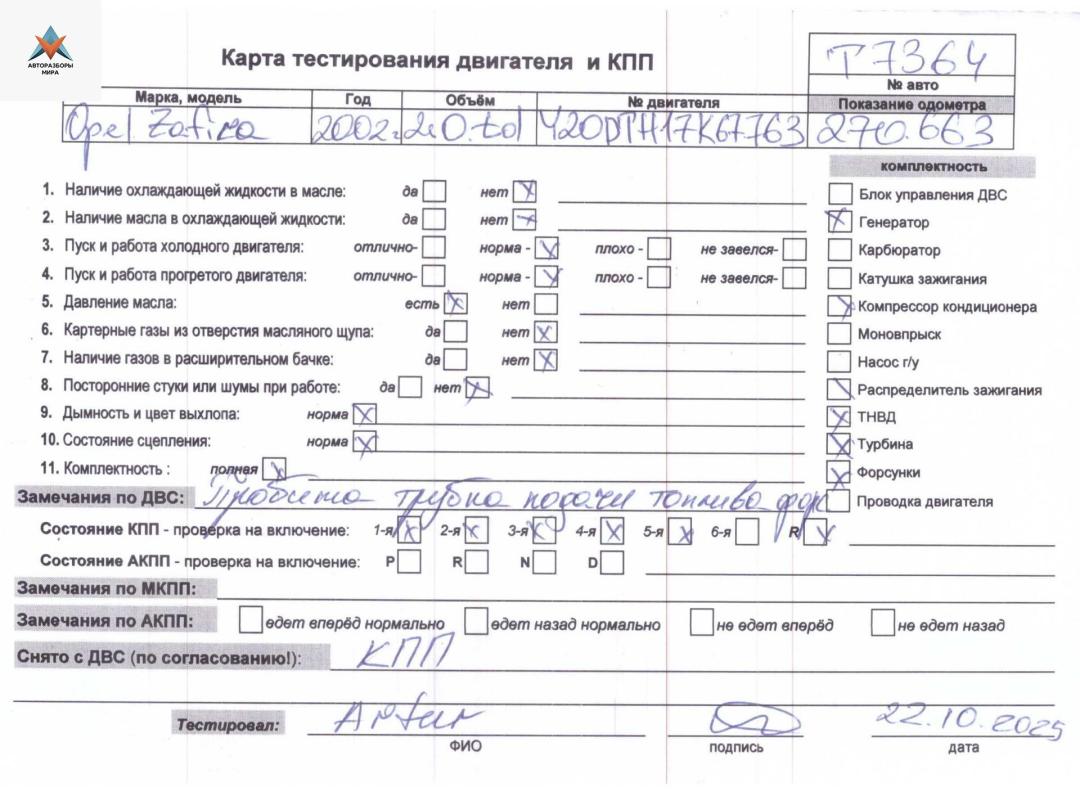 АВТОРАЗБОРЫ
МИРА
Карта тестирования двигателя и КПП
T7364
№ авто
Марка, модель Год Объём № двигателя Показание одометра
Opel Zafira 2002г. 2.0.td Y20DTH17K67763 270.663
комплектность
1. Наличие охлаждающей жидкости в масле: да нет X
2. Наличие масла в охлаждающей жидкости: да нет X
3. Пуск и работа холодного двигателя: отлично- норма - X плохо - не завелся-
4. Пуск и работа прогретого двигателя: отлично- норма - X плохо - не завелся-
5. Давление масла: есть X нет
6. Картерные газы из отверстия масляного щупа: да нет X
7. Наличие газов в расширительном бачке: да нет X
8. Посторонние стуки или шумы при работе: да нет X
9. Дымность и цвет выхлопа: норма X
10. Состояние сцепления: норма X
11. Комплектность : полная X
Блок управления ДВС
X Генератор
Карбюратор
Катушка зажигания
X Компрессор кондиционера
Моновпрыск
Насос г/у
\ Распределитель зажигания
X ТНВД
X Турбина
X Форсунки
Проводка двигателя
Замечания по ДВС: Пробита трубка подачи топлива фор
Состояние КПП - проверка на включение: 1-я X 2-я X 3-я X 4-я X 5-я X 6-я R X
Состояние АКПП - проверка на включение: P R N D
Замечания по МКПП:
Замечания по АКПП: едет вперёд нормально едет назад нормально не едет вперёд не едет назад
Снято с ДВС (по согласованию!): КПП
Тестировал: Artur 22.10.2025
ФИО подпись дата